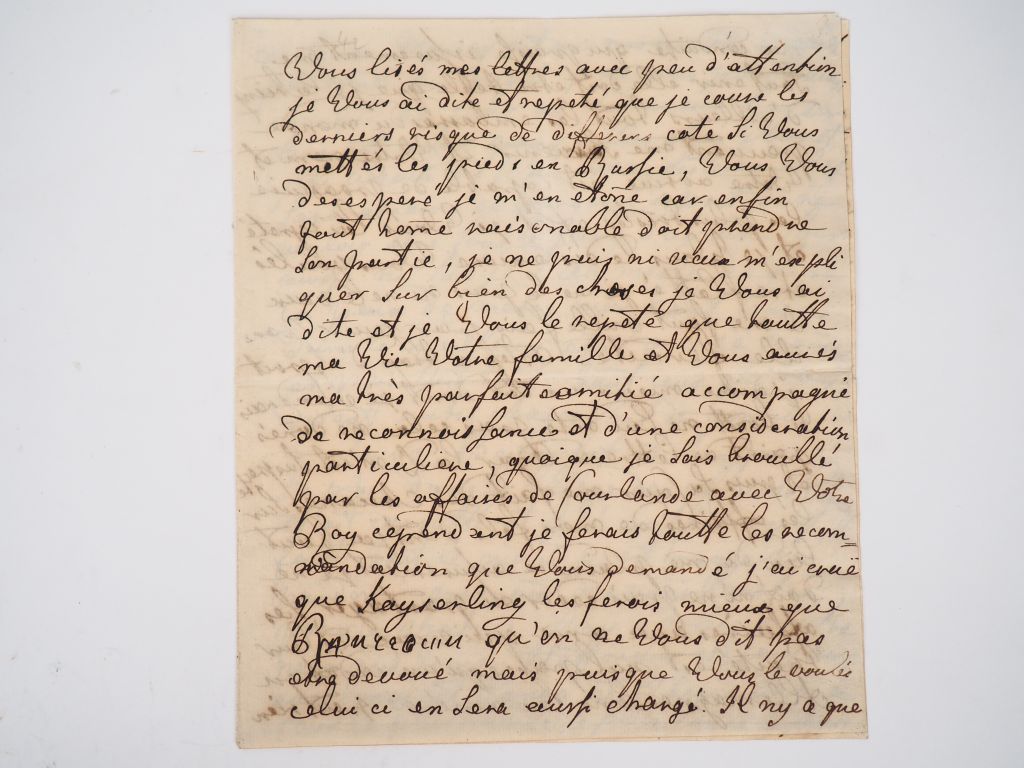 Vous lisés mes lettres avec peu d'attention
je Vous ai dite et repeté que je coure les
derniers risque de differens coté si Vous
mettés les pieds en Russie, Vous Vous
desesperé je m'en etoñe car enfin
tout home raisonable doit prendre
son partie, je ne puis ni veux m'expli
quer sur bien des choses je Vous ai
dite et je Vous le repeté que toutte
ma Vie Votre famille et Vous aurés
ma très parfaite amitié accompagné
de reconnoissance et d'une consideration
particuliere, quoique je sois brouillé
par les affaires de Courlande avec Votre
Roy cependent je ferais toutte les recom=
mendation que Vous demandé j'ai cruë
que Kayserling les ferois mieux que
qu'on ne Vous dit pas
etre devoué mais puisque Vous le voulés
celui ci en sera aussi changé. Il ny a que